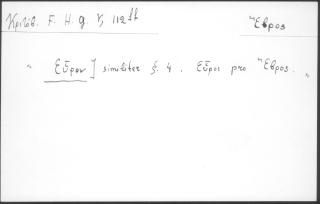 Κριτόβ. F. H. G. V, 112 ff
Ἕβρος
„ Εὖρον] similiter §. 4. Εὖρος pro Ἕβρος. „